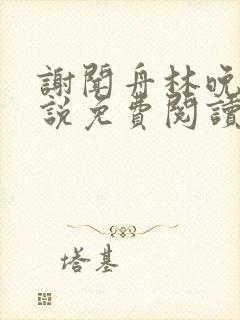 謝聞舟林晚
說免費閱讀
塔基